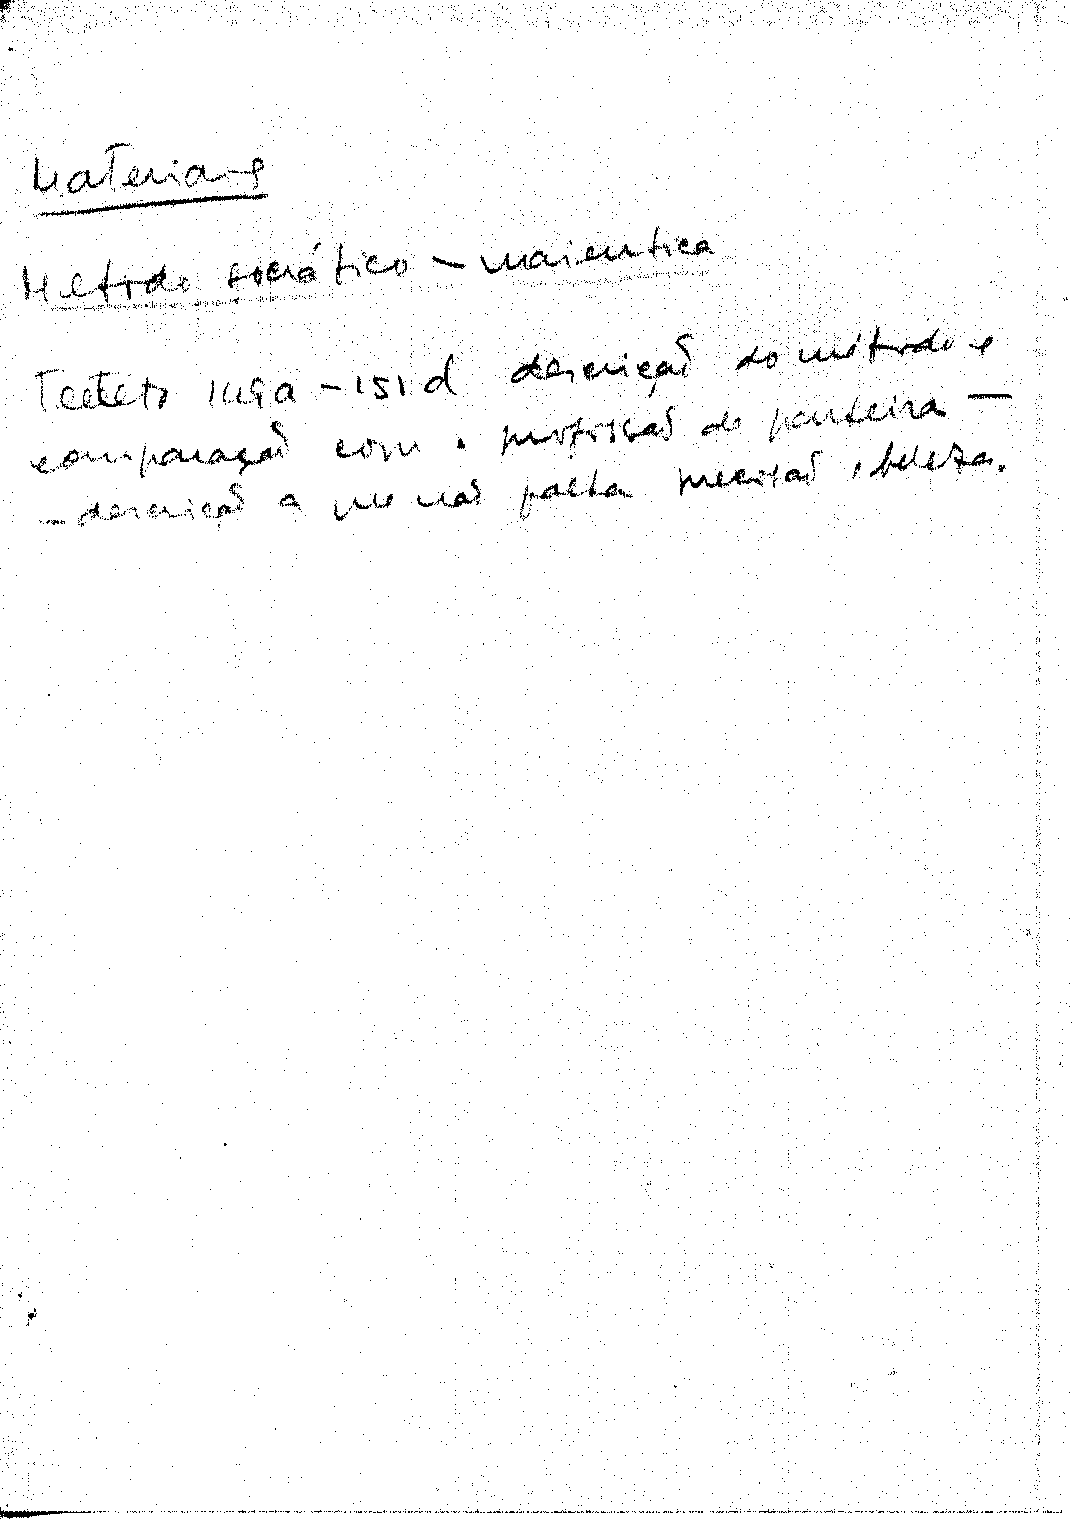 Materiais
Metodo socrático – maieutica
Teeteto 149a – 151 d descrição do método e
comparação com a profissão de parteira –
– descrição a que não falta precisão e beleza.